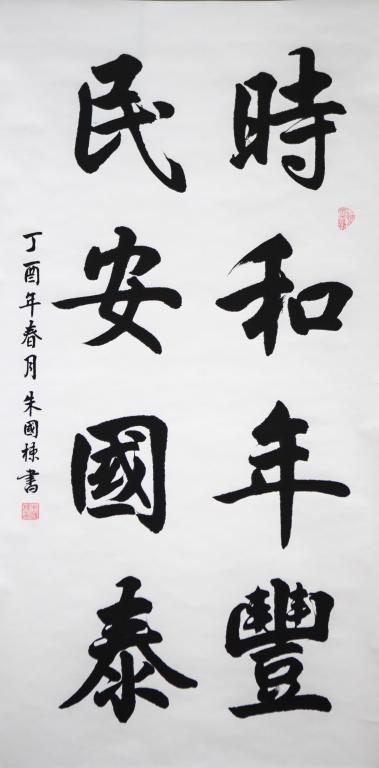 時和年豐
民安國泰
丁酉年春月朱國棟書